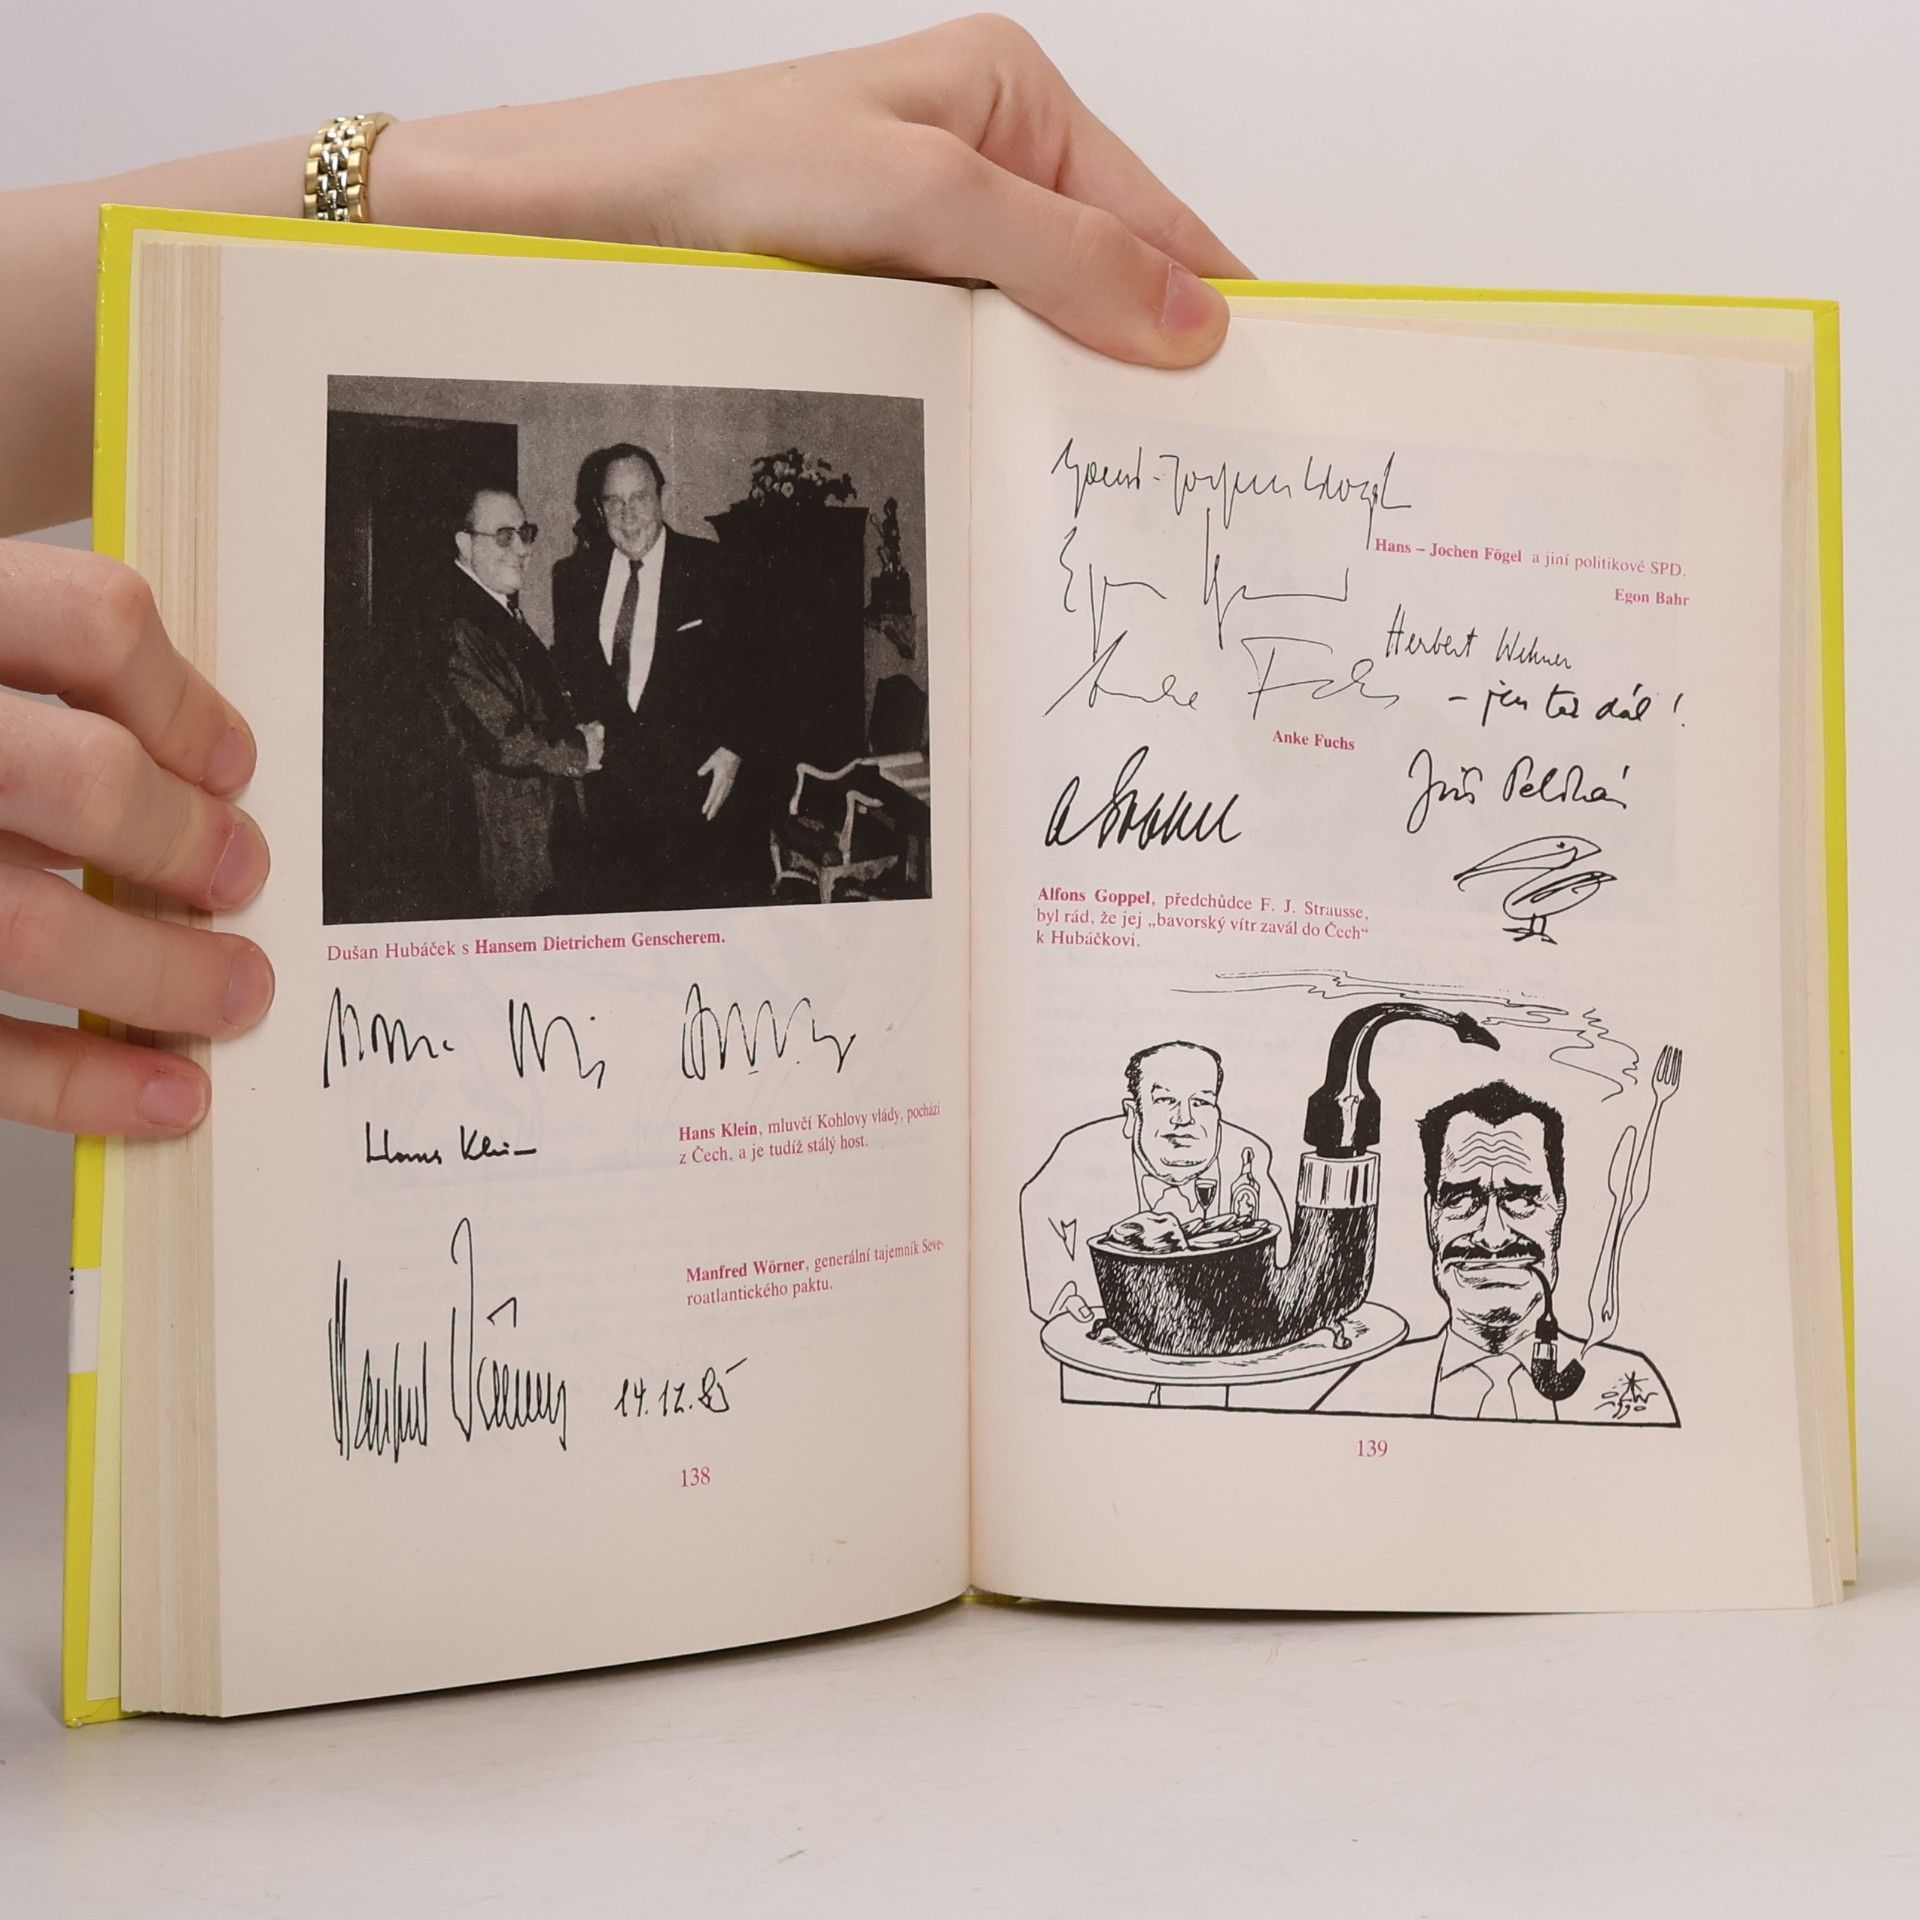 Dušan Hubáček s Hansem Dietrichem Genscherem.
Hans Klein
Hans Klein, mluvčí Kohlovy vlády, pochází
z Čech, a je tudíž stálý host.
Manfred Wörner, generální tajemník Seve-
roatlantického paktu.
Manfred Wörner 14.12.85
138
Hans-Jochen Vogel
Hans – Jochen Fögel a jiní politikové SPD.
Egon Bahr
Herbert Wehner
Anke Fuchs
– jen tak dál!
Anke Fuchs
Jiří Pelikán
A Goppel
Alfons Goppel, předchůdce F. J. Strausse,
byl rád, že jej „bavorský vítr zavál do Čech“
k Hubáčkovi.
139